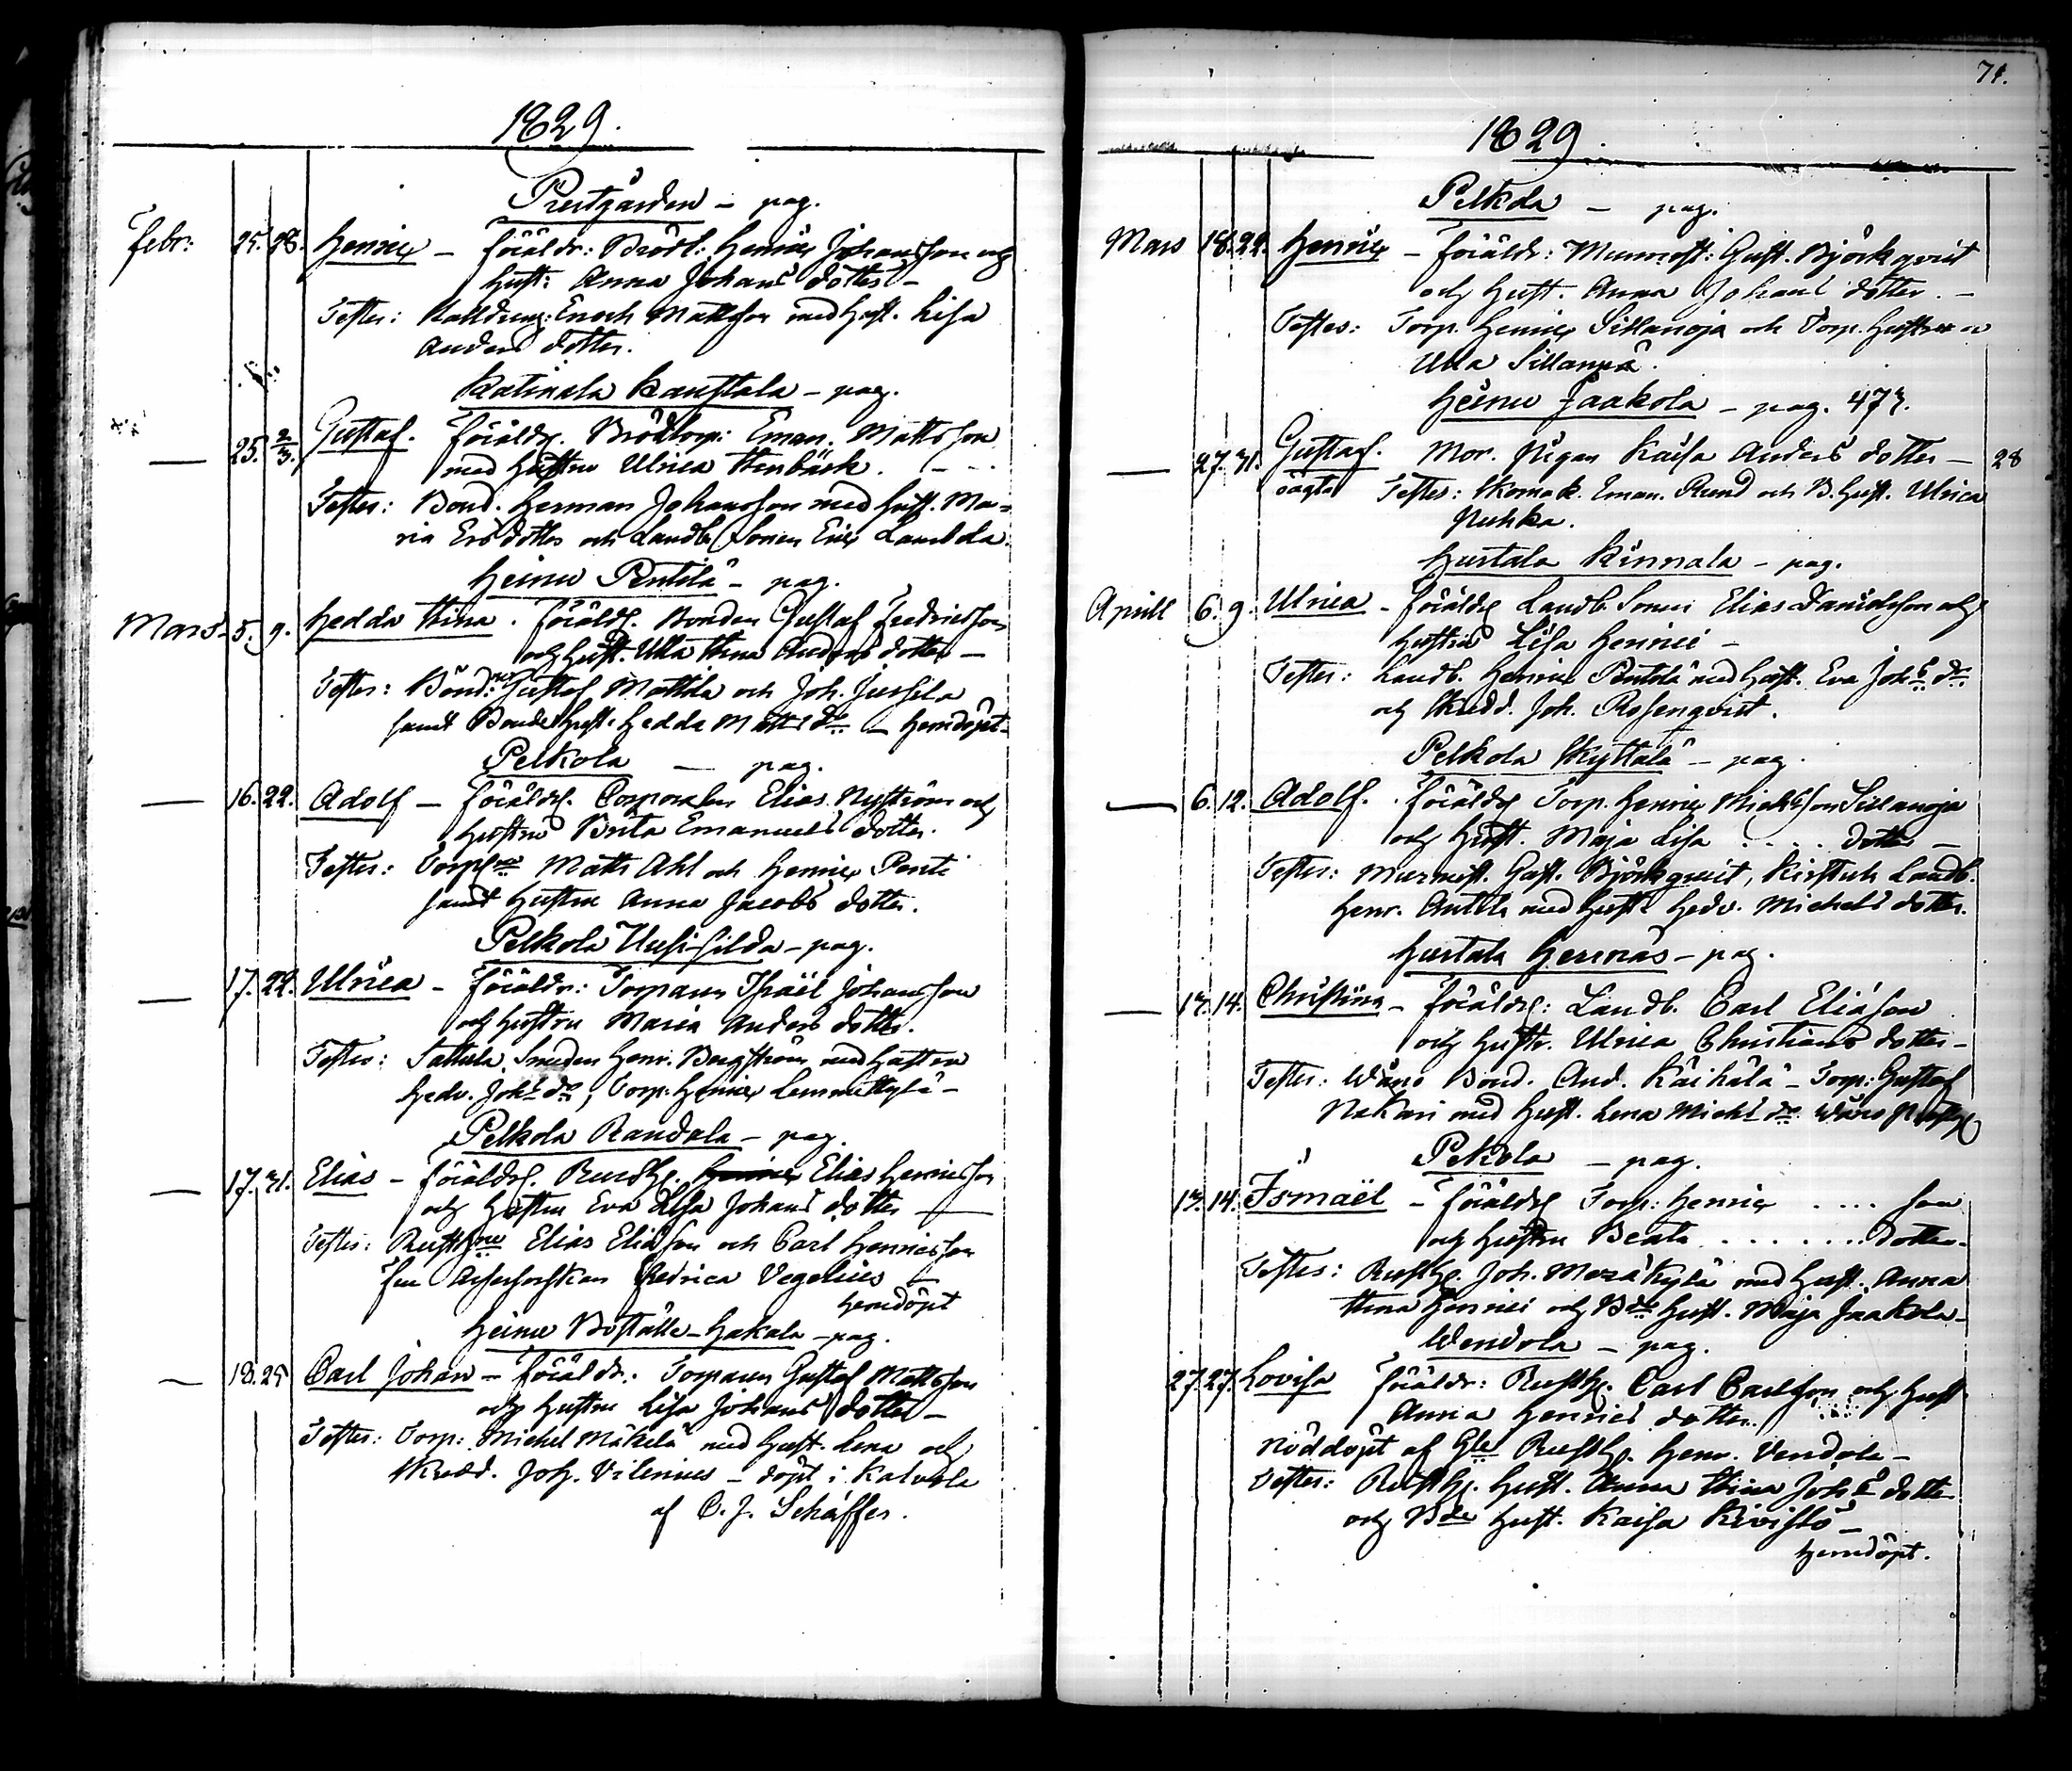 1829.
Prestgården – pag.
Febr: 25. 28. Henric – föräldr: Brodl: Henric Johansson och
hust: Anna Johans dotter –
Testes: Kalldreng: Enoch Mattsson med hust. Lisa
Anders dotter.
Katinala Kaustala – pag.
— 25. 2/3. Gustaf. föräldr. Brödtorp: Eman. Matts son
med hustru Ulrica Stenbäck. – –
Testes: Bond. Herman Johansson med hust. Ma-
ria Ers dotter och Landb. Sonen Eric Lambola.
Heinu Pentilä – pag.
Mars 5. 9. Hedda Stina. föräldr. Bonden Gustaf Fredricsson
och hust. Ulla Stina Anders dotter –
Testes: Bönd: Gustaf Mattila och Joh. Jussila
samt Bonde hust. Hedda Matts dr. – hemdöpt
Pelkola — pag.
— 16. 22. Adolf – föräldr. Corporalen Elias Nyström och
hustru Brita Emanuels dotter.
Testes: Torp. Matts Ahl och Henric Penti
samt hustru Anna Jacobs dotter.
Pelkola Uusi-silda – pag.
— 17. 22. Ulrica – föräldr: Torparen Israël Johansson
och hustru Maria Anders dotter.
Testes: Sattula Smeden Henr. Bergström med hustru
Hedv. Johs dr, Torp: Henric Lemmettylä –
Pelkola Randala – pag.
— 17. 31. Elias – föräldr. Rusth. Henric Elias Henricsson
och hustru Eva Lisa Johans dotter —
Testes: Rusth. Elias Eliasson och Carl Henricsson
Fru Assessorskan Fredrica Vegelius –
hemdöpt
Heinu Boställe-Hakala – pag.
— 18. 25 Carl Johan – föräldr. Torparen Gustaf Mattsson
och hustru Lisa Johans dotter –
Testes: Torp: Michel Mäkelä med hust. Lena och
Skredd. Joh. Vilenius – döpt i Kalvola
af C. J. Schäffer.
71.
1829.
Pelkola – pag.
Mars 18. 22. Henric – föräldr: Murmest: Gust. Björkqvist
och hust. Anna Johans dotter. –
Testes: Torp. Henric Sillanoja och Torp. hustrun
Ulla Sillanpä.
Heinu Jaakola – pag. 473.
— 27. 31. Gustaf. Mor. Pigan Kaisa Anders dotter – 28
oägta Testes: Skomak. Eman. Rund och B. hust. Ulrica
Puhka.
Hurtala Kinnala – pag.
Aprill 6. 9. Ulrica – föräldr Landb. Sonen Elias Danielsson och
hustru Lisa Henrici –
Testes: Landb. Henric Pentilä med hust. Eva Johs dr.
och Skredd. Joh. Rosenqvist.
Pelkola Kyttälä – pag.
— 6. 12. Adolf. föräldr Torp. Henric Michelsson Sillanoja
och hust. Maja Lisa . . . . dotter –
Testes: Murmest. Gust. Björkqvist, Landb.
Henr. Antila med hust. Hedv. Michels dotter.
Hurtala Hernäs – pag.
— 13. 14. Christina – föräldr: Landb. Carl Eliasson
och hustr. Ulrica Christians dotter –
Testes: Wånå Bond. And. Käikälä – Torp: Gustaf
Nokari med hust. Lena Michs dr. Wånå
Pelkola – pag.
13. 14. Ismaël – föräldr Torp: Henric . . . . son
och hustru Beata . . . . . . . dotter.
Testes: Rusth. Joh. Meräkylä med hust. Anna
Stina Henrici och Bde hust. Maja Jaakola –
Wendola – pag.
27. 27. Lovisa föräldr: Rusth. Carl Carlsson och hust
Anna Henrics dotter.
Nöddöpt af Gle Rusth. Henr. Vendola –
Testes: Rusth. hust. Anna Stina Johs dotter
och Bde hust. Kaisa Kivistö –
hemdöpt.